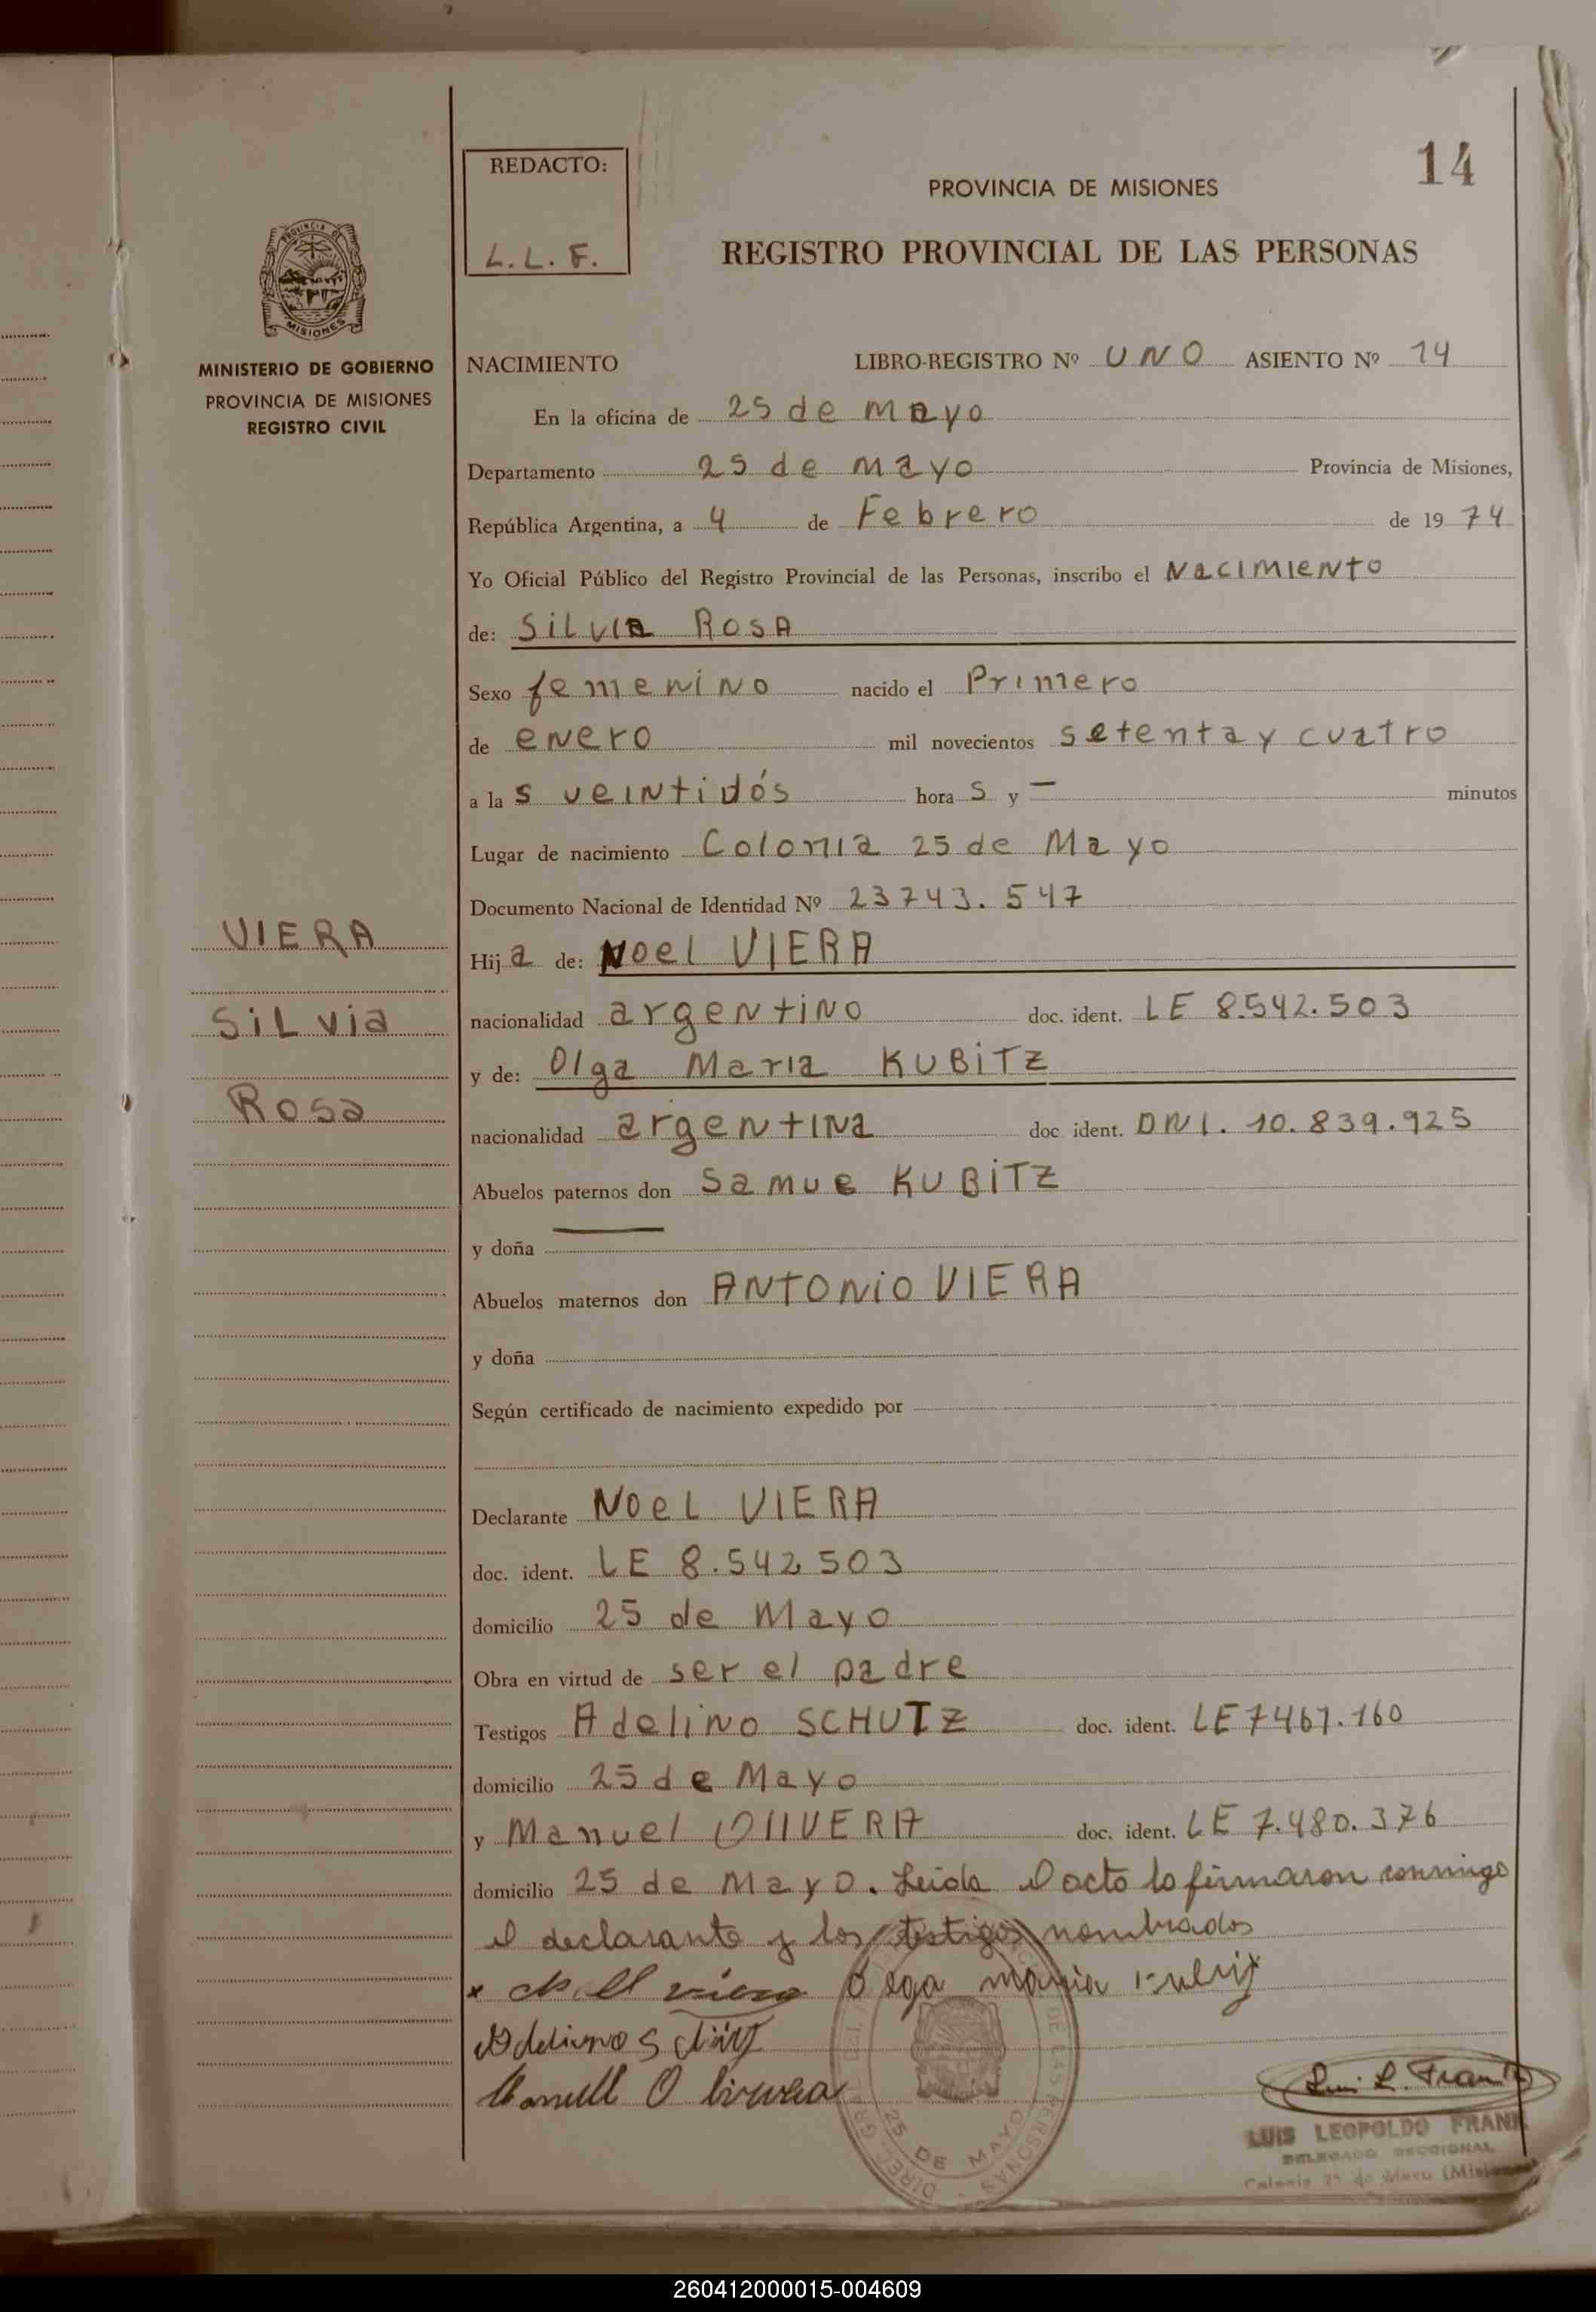 REDACTO:
L. L. F.
14
PROVINCIA DE MISIONES
REGISTRO PROVINCIAL DE LAS PERSONAS
PROVINCIA DE
MISIONES
MINISTERIO DE GOBIERNO
PROVINCIA DE MISIONES
REGISTRO CIVIL
NACIMIENTO LIBRO-REGISTRO Nº UNO ASIENTO Nº 14
En la oficina de 25 de mayo
Departamento 25 de mayo Provincia de Misiones,
República Argentina, a 4 de Febrero de 19 74
Yo Oficial Público del Registro Provincial de las Personas, inscribo el Nacimiento
de: SILVIA ROSA
Sexo femenino nacido el Primero
de enero mil novecientos setenta y cuatro
a la s veintidós hora s y — minutos
Lugar de nacimiento Colonia 25 de Mayo
Documento Nacional de Identidad Nº 23743.547
VIERA
Silvia
Rosa
Hij a de: Noel VIERA
nacionalidad argentino doc. ident. LE 8.542.503
y de: Olga Maria KUBITZ
nacionalidad argentina doc ident. DNI. 10.839.925
Abuelos paternos don Samue KUBITZ
y doña —
Abuelos maternos don ANTONIO VIERA
y doña
Según certificado de nacimiento expedido por
Declarante Noel VIERA
doc. ident. LE 8.542.503
domicilio 25 de Mayo
Obra en virtud de ser el padre
Testigos Adelino SCHUTZ doc. ident. LE 7467.160
domicilio 25 de Mayo
y Manuel OLIVERA doc. ident. LE 7.480.376
domicilio 25 de Mayo. Leida el acto lo firmaron conmigo
el declarante y los testigos nombrados
x viera Olga maria
Adelino
Manuel Olivera
25 DE MAYO
DE LAS PERSONAS
DIREC. GRAL.
Luis L. Frank
LUIS LEOPOLDO FRANK
DELEGADO SECCIONAL
Colonia 25 de Mayo (Misiones)
260412000015-004609